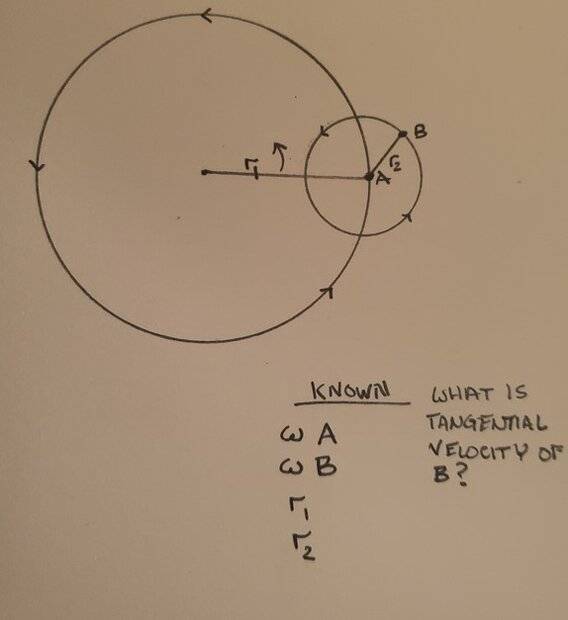 B
r₁
r₂
A
KNOWN
ω A
ω B
r₁
r₂
WHAT IS
TANGENTIAL
VELOCITY OF
B?